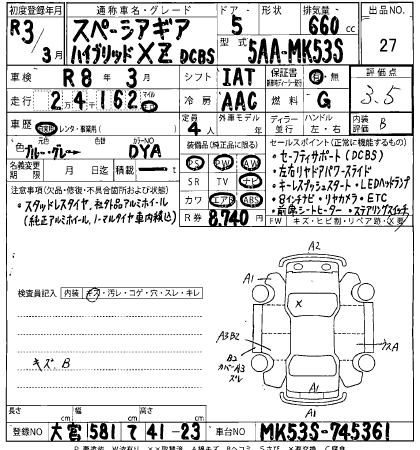 初度登録年月 通称車名・グレード ドア 形状 排気量 出品NO.
R3/3月 スペーシアギア ハイブリッド XZ DCBS 5 660cc 27
型式 5AA-MK53S
車検 R8年3月 シフト IAT 保証書 有・無 評価点
走行 24162 マイル 冷房 AAC 燃料 G 3.5
車歴 自家用・レンタ・事業用( ) 定員 4人 外車モデル ディーラー 並行 ハンドル 左・右 内装 B
色 元色 ブルー・グレー 色替 カラーNO DYA
装備品(純正品に限る) セールスポイント(正常に機能するもの)
PS PW AW
SR TV ナビ
カワ エアB ABS
・セーフティサポート(DCBS)
・左右リヤドアパワースライド
・キーレスプッシュスタート・LEDヘッドランプ
・8インチナビ・リヤカメラ・ETC
・前席シートヒーター・ステアリングスイッチ
名義変更期限 月 日迄 積載 t
注意事項(欠品・修復・不具合箇所および改造等)
R券 8,740円
FW キズ・ヒビ割・リペア跡・X要
・スタッドレスタイヤ、社外品アルミホイール
(純正アルミホイール、ノーマルタイヤ車内積込)
検査員記入 内装 キズ・汚レ・コゲ・穴・スレ・キレ
キズ.B
A2
A1
X
A3B2
B2
カバーA3
ズレ
スA
A1
A1
長さ cm 幅 cm 高さ cm
登録NO 大宮 581 て 41-23 車台NO MK53S-745361